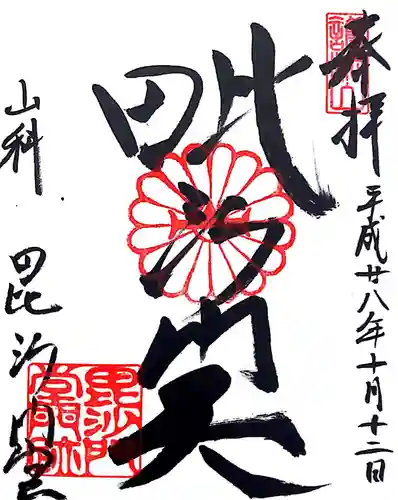 奉拝
平成廿八年十月十二日
毘沙門天
山科
毘沙門堂
毘沙門堂印